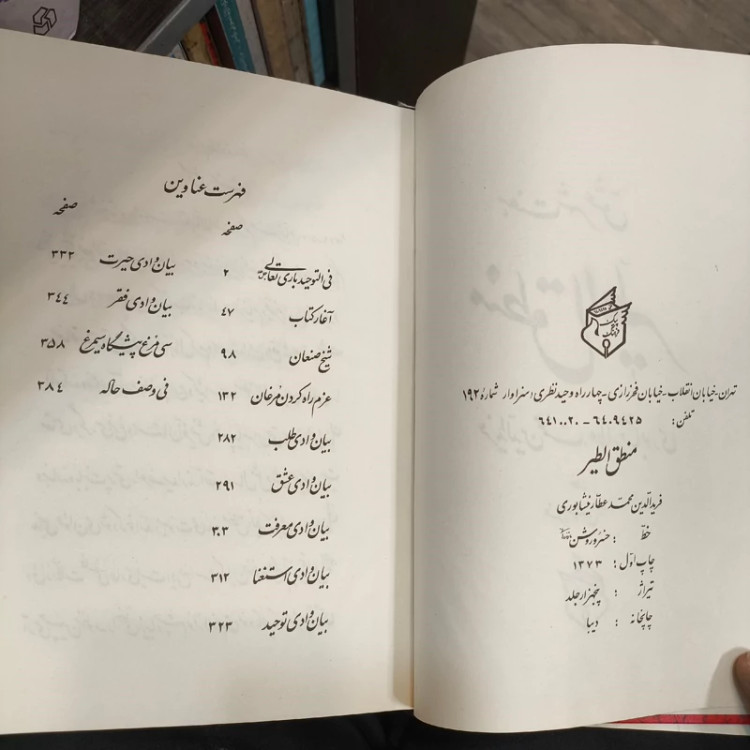 تهران-خیابان انقلاب-خیابان فخررازی-چهارراه وحیدنظری؛ سزاوار شمارهٔ ۱۹۲
تلفن: ۶۴۰۹۴۲۵ - ۶۴۱۰۰۲۰
منطق الطیر
فریدالدین محمد عطار نیشابوری
خط : خسرو روشن
چاپ اوّل : ۱۳۷۳
تیراژ : پنجهزار جلد
چاپخانه : دیبا
فهرست عناوین
صفحه
فی التوحید باری تعالی ۲
آغاز کتاب ۴۷
شیخ صنعان ۹۸
عزم راه کردن مرغان ۱۳۲
بیان وادی طلب ۲۸۲
بیان وادی عشق ۲۹۱
بیان وادی معرفت ۳۰۳
بیان وادی استغنا ۳۱۲
بیان وادی توحید ۳۲۳
صفحه
بیان وادی حیرت ۳۳۲
بیان وادی فقر ۳۴۴
سی مرغ پیشگاه سیمرغ ۳۵۸
فی وصف حاله ۳۸۴